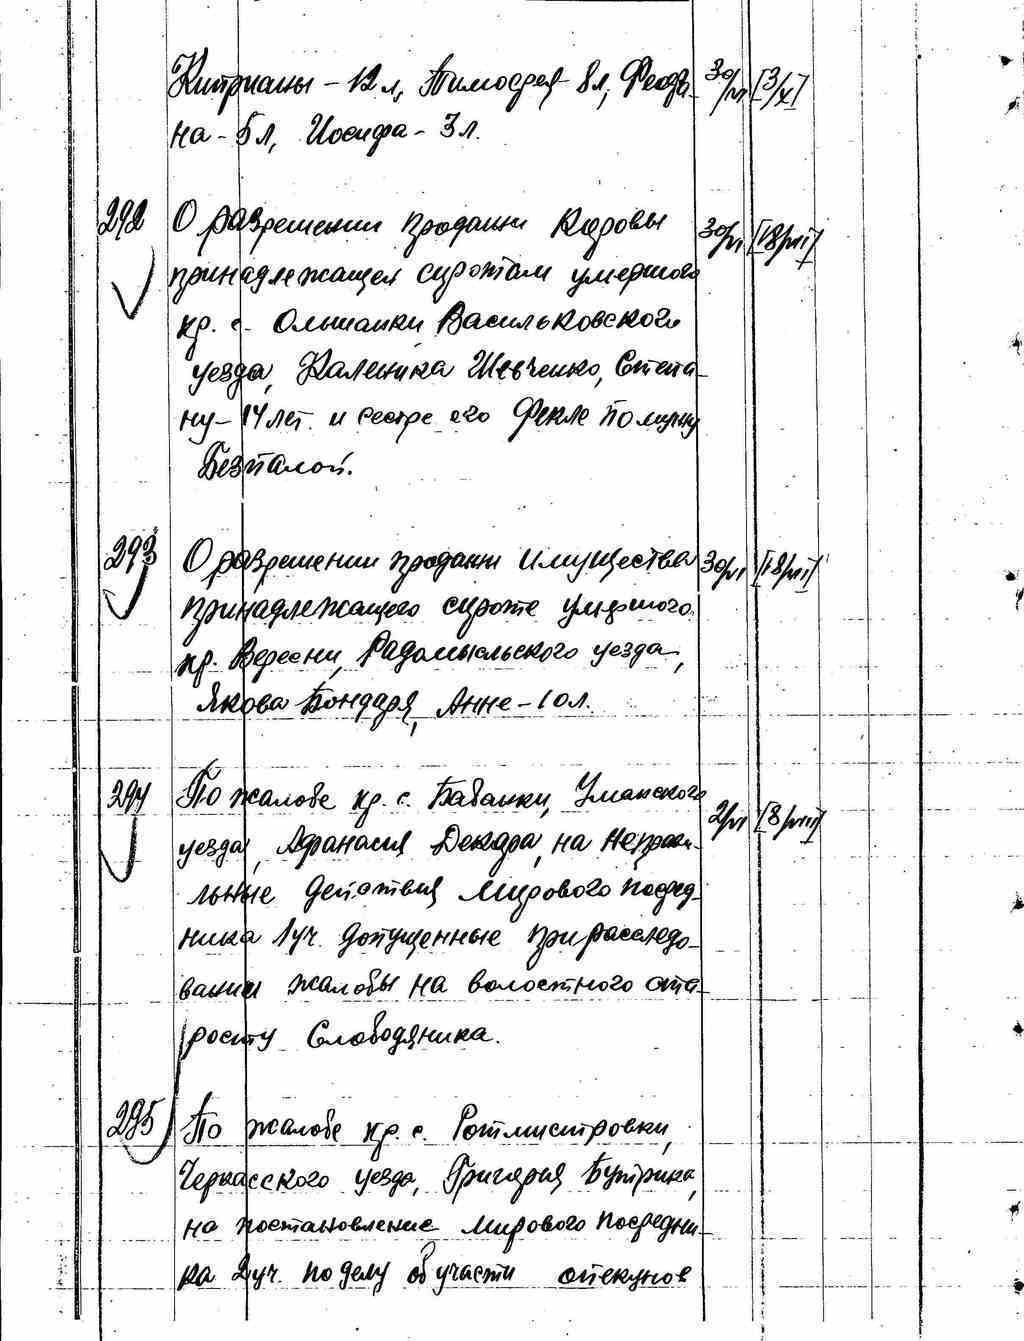 Киприаны - 12 л, Тимофея - 8 л, Феодо- 30/VI [3/X]
на - 5 л, Иосифа - 3 л.
292 О разрешении продажи коровы 30/VI [18/VII]
принадлежащей сиротам умершого
кр. с. Ольшанки Васильковского
уезда, Каленика Шевченко, Степа-
ну - 14 лет и сестре его Фекле по мужу
Безпалой.
293 О разрешении продажи имущества 30/VI [18/VII]
принадлежащего сироте умершого
кр. Вересни, Радомысльского уезда,
Якова Бондаря, Анне - 10 л.
294 По жалобе кр. с. Бабанки, Уманского
2/VI [8/VIII]
уезда, Афанасия Декера, на неправи-
льные действия мирового посред-
ника 1 уч. допущенные при расследо-
вании жалобы на волостного ста-
росту Слободяника.
295 По жалобе кр. с. Ротмистровки,
Черкасского уезда, Григория Бутрика,
на постановление мирового посредни-
ка 2 уч. по делу об участи опекунов